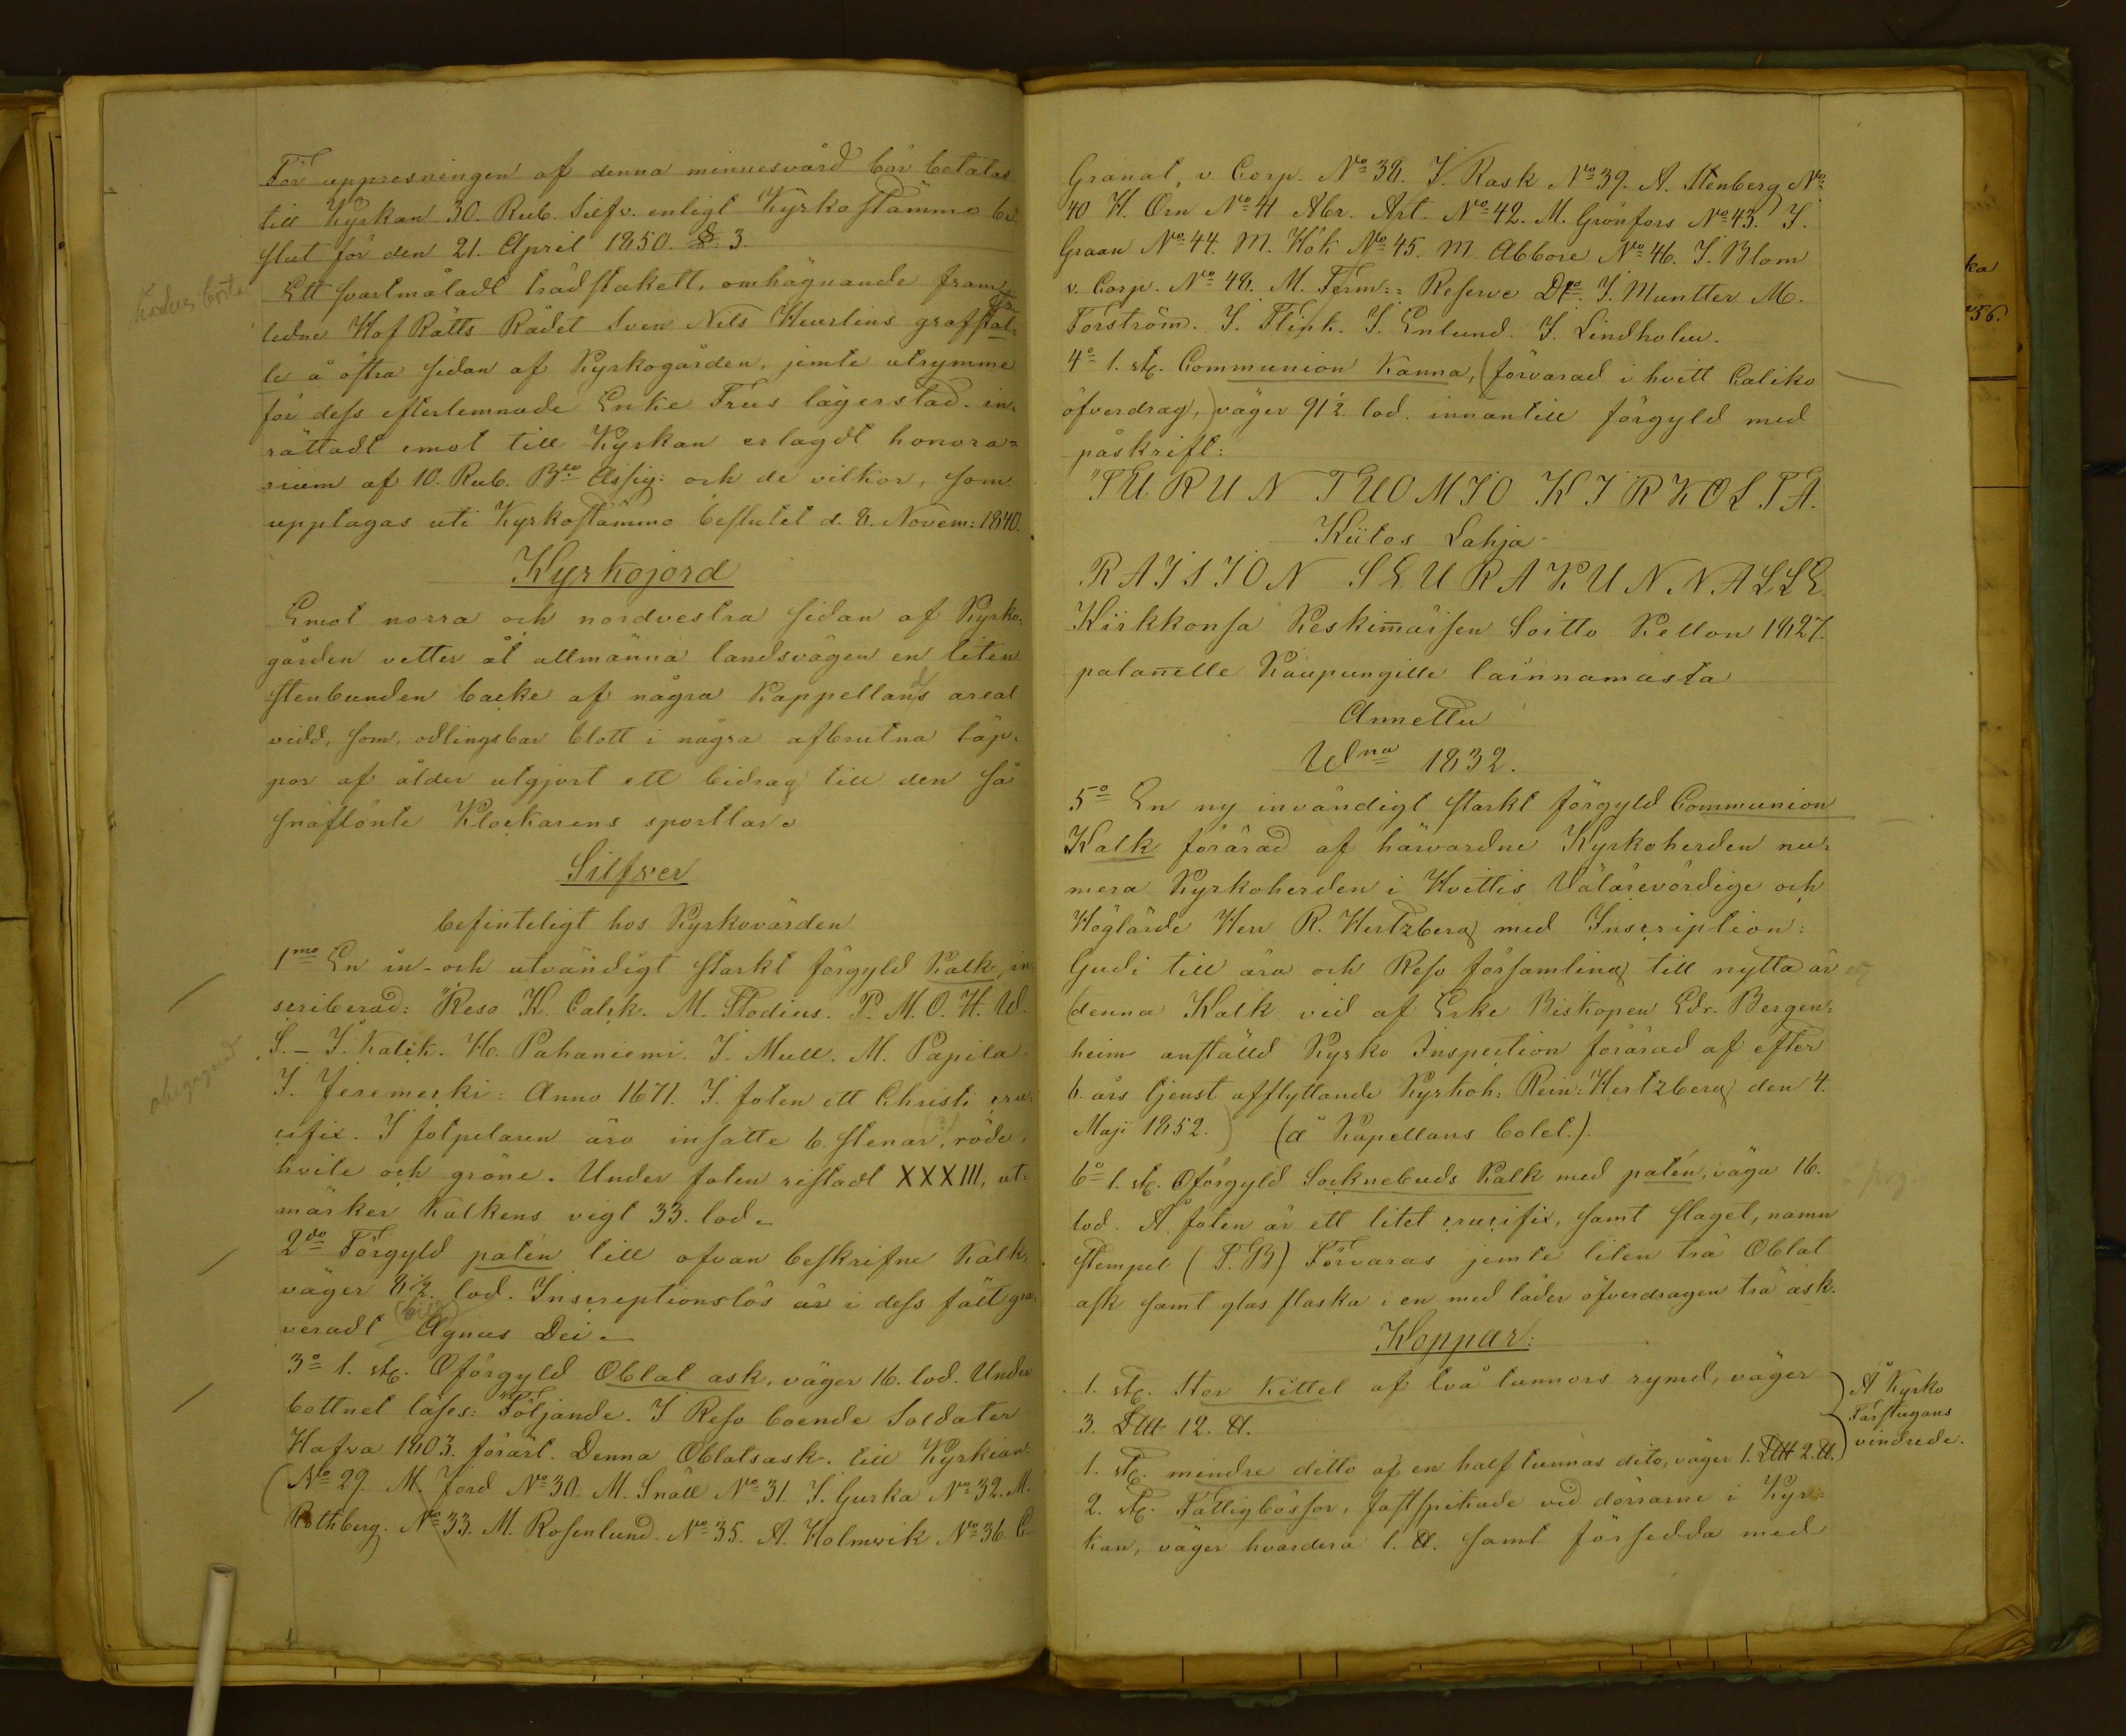 För uppresningen af denna minnesvård bör betalas
till Kyrkan 30. Rub. Silfv. enligt Kyrkostämmo be-
slut för den 21. April 1850. §. 3.
Ett svartmåladt trädstakett, omhägnande fram-
ledne Hof Rätts Rådet Sven Nils Heurlins grafstäl-
le å östra sidan af Kyrkogården, jemte utrymme
för dess efterlemnade Enke Frus lägerstad. in-
rättadt emot till Kyrkan erlagdt honora=
rium af 10. Rub. Bco Assig: och de vilkor, som
upptagas uti Kyrkostämmo beslutet d. 8. Novem: 1840.
Kyrkojord
Emot norra och nordvestra sidan af Kyrko-
gården vetter åt allmänna landsvägen en liten
stenbunden backe af några Kappellands areal
vidd, som, odlingsbar blott i några afbrutna täp-
por af ålder utgjort ett bidrag till den så
snäflönte Klockarens sportlar.
Silfver
befinteligt hos Kyrkovärden
1mo En in- och utvändigt starkt förgyld Kalk, in
scriberad: "Reso K. Calck. M. Stodius. P. M. O. H. W.
S. – J. Kalck. H. Pahaniemi. J. Mull. M. Papila
J. Jeremerki: Anno 1671. I foten ett Christi cru-
cifix. I fotpelaren äro insatte 6. stenar, röde,
hvite och gröne. Under foten ristadt XXXIII, ut-
märker Kalkens vigt 33. lod.
2do Förgyld patén till ofvan beskrifne Kalk,
väger 8½. lod. Inscriptionslös är i dess fält gra-
veradt (bild) Agnus Dei.
3o 1. st. Oförgyld Oblat ask, väger 16. lod. Under
bottnet läses: "Följande. I Reso boende Soldater
Hafva 1803. förärt. Denna Oblatsask. till Kyrkian:
(No 29. M. Jord No 30. M. Snäll No 31. J. Gurka No 32. M.
Rothberg. No 33. M. Rosenlund. No 35. A. Holmvik No 36. C
Granat, v. Corp. No 38. J. Rask No 39. A. Stenberg No
40 H. Örn No 41 Abr. Art. No 42. M. Grönfors No 43. J.
Graan No 44. M. Hök No 45. M. Abbore No 46. J. Blom
v. Corp. No 48. M. Ferm:= Reserve Dto. J. Muntter M.
Forström. J. Flink. J. Enlund. J. Lindholm.
4o 1. st. Communion Kanna, (förvarad i hvitt Caliko
öfverdrag,) väger 91½. lod. innantill förgyld med
påskrift:
"TURUN TUOMIO KIRKOLTA.
Kiitos Lahja
RAISION SEURAKUNNALLE
Kirkkonsa Keskimäisen Soitto Kellon 1827.
palanelle Kaupungille lainnamasta
Annettu
Wna 1832.
5o En ny invändigt starkt förgyld Communion
Kalk förärad af härvardne Kyrkoherden nu-
mera Kyrkoherden i Hvittis Välärevördige och
Höglärde Herr R. Hertzberg med Inscription:
Gudi till ära och Reso församling till nytta är
(denna Kalk vid af Erke Biskopen Edv. Bergen-
heim anställd Kyrko Inspection förärad af efter
6. års tjenst afflyttande Kyrkoh: Rein: Hertzberg den 4.
Maji 1852.) (å Kapellans bolet.).
6o 1. st. Oförgyld Socknebuds Kalk med patén, väga 16.
lod. Å foten är ett litet crucifix, samt slaget, namn
stempel (T. B) Förvaras jemte liten trä Oblat
ask samt glas flaska i en med läder öfverdragen trä ask.
Koppar:
1. st. Stor Kittel af två tunnors rymd, väger
3. L℔ 12. ℔.
1. st. mindre ditto af en half tunnas dito, väger 1. L℔ 2. ℔.
2. st. Fattigbössor, fastspikade vid dörrarne i Kyr=
kan, väger hvardera 1. ℔. samt försedda med
Å Kyrko
Farstugans
vindrede.